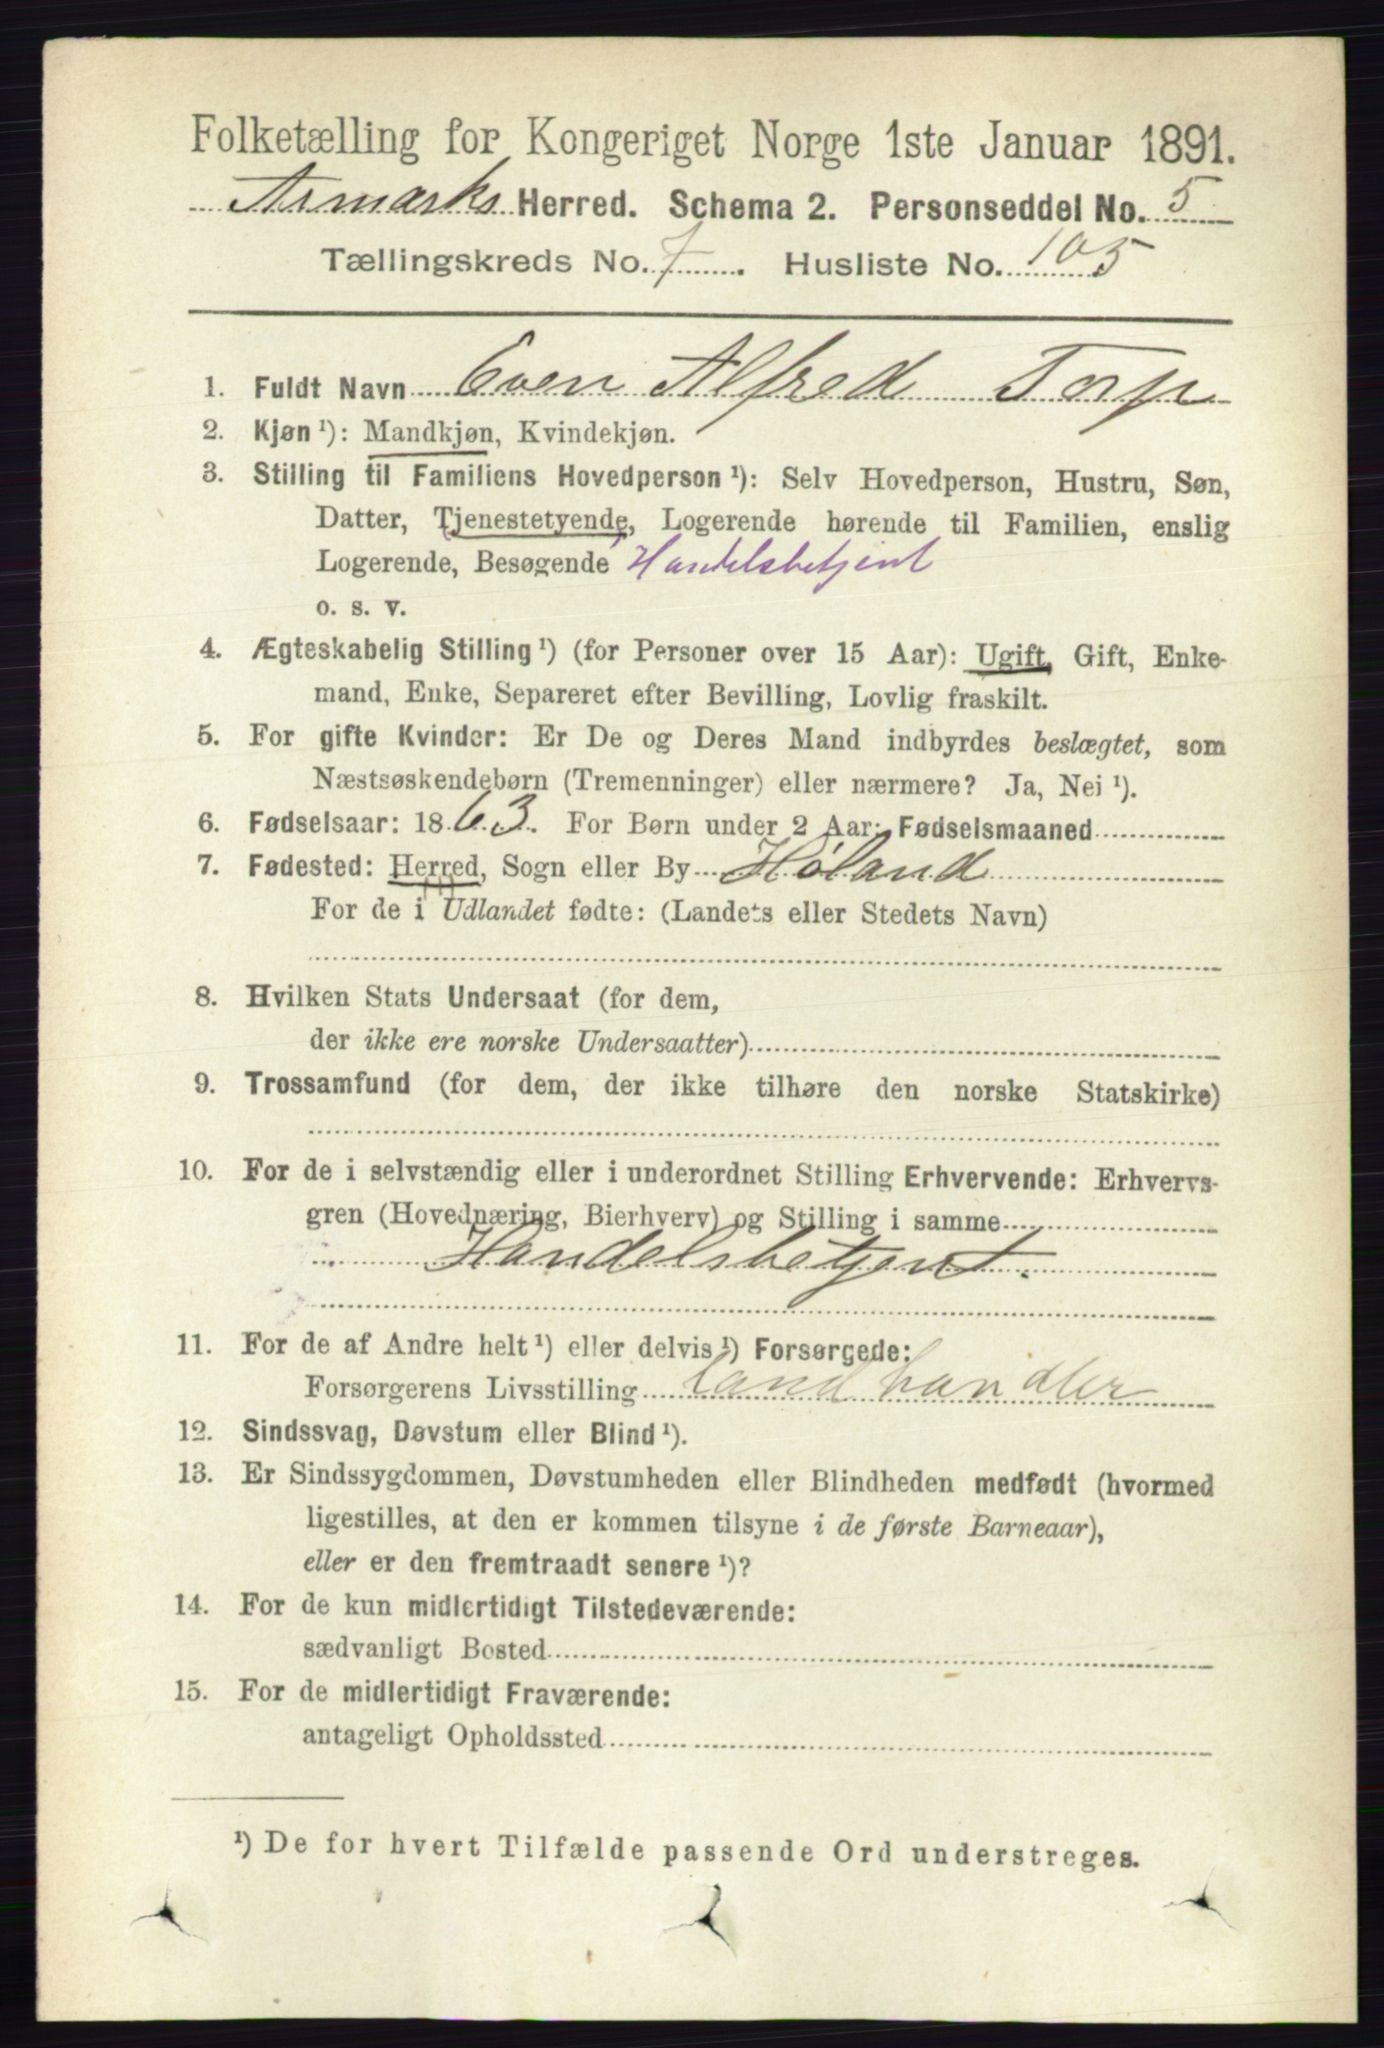 Folketælling for Kongeriget Norge 1ste Januar 1891.
Armarks Herred. Schema 2. Personseddel No. 5
Tællingskreds No. 7. Husliste No. 105
1. Fuldt Navn Even Alfred Torp
2. Kjøn ¹): Mandkjøn, Kvindekjøn.
3. Stilling til Familiens Hovedperson ¹): Selv Hovedperson, Hustru, Søn,
Datter, Tjenestetyende, Logerende hørende til Familien, enslig
Logerende, Besøgende Handelsbetjent
o. s. v.
4. Ægteskabelig Stilling ¹) (for Personer over 15 Aar): Ugift, Gift, Enke-
mand, Enke, Separeret efter Bevilling, Lovlig fraskilt.
5. For gifte Kvinder: Er De og Deres Mand indbyrdes beslægtet, som
Næstsøskendebørn (Tremenninger) eller nærmere? Ja, Nei ¹).
6. Fødselsaar: 1863. For Børn under 2 Aar: Fødselsmaaned
7. Fødested: Herred, Sogn eller By Høland
For de i Udlandet fødte: (Landets eller Stedets Navn)
8. Hvilken Stats Undersaat (for dem,
der ikke ere norske Undersaatter)
9. Trossamfund (for dem, der ikke tilhøre den norske Statskirke)
10. For de i selvstændig eller i underordnet Stilling Erhvervende: Erhvervs-
gren (Hovednæring, Bierhverv) og Stilling i samme
Handelsbetjent.
11. For de af Andre helt ¹) eller delvis ¹) Forsørgede:
Forsørgerens Livsstilling Landhandler
12. Sindssvag, Døvstum eller Blind ¹).
13. Er Sindssygdommen, Døvstumheden eller Blindheden medfødt (hvormed
ligestilles, at den er kommen tilsyne i de første Barneaar),
eller er den fremtraadt senere ¹)?
14. For de kun midlertidigt Tilstedeværende:
sædvanligt Bosted
15. For de midlertidigt Fraværende:
antageligt Opholdssted
¹) De for hvert Tilfælde passende Ord understreges.